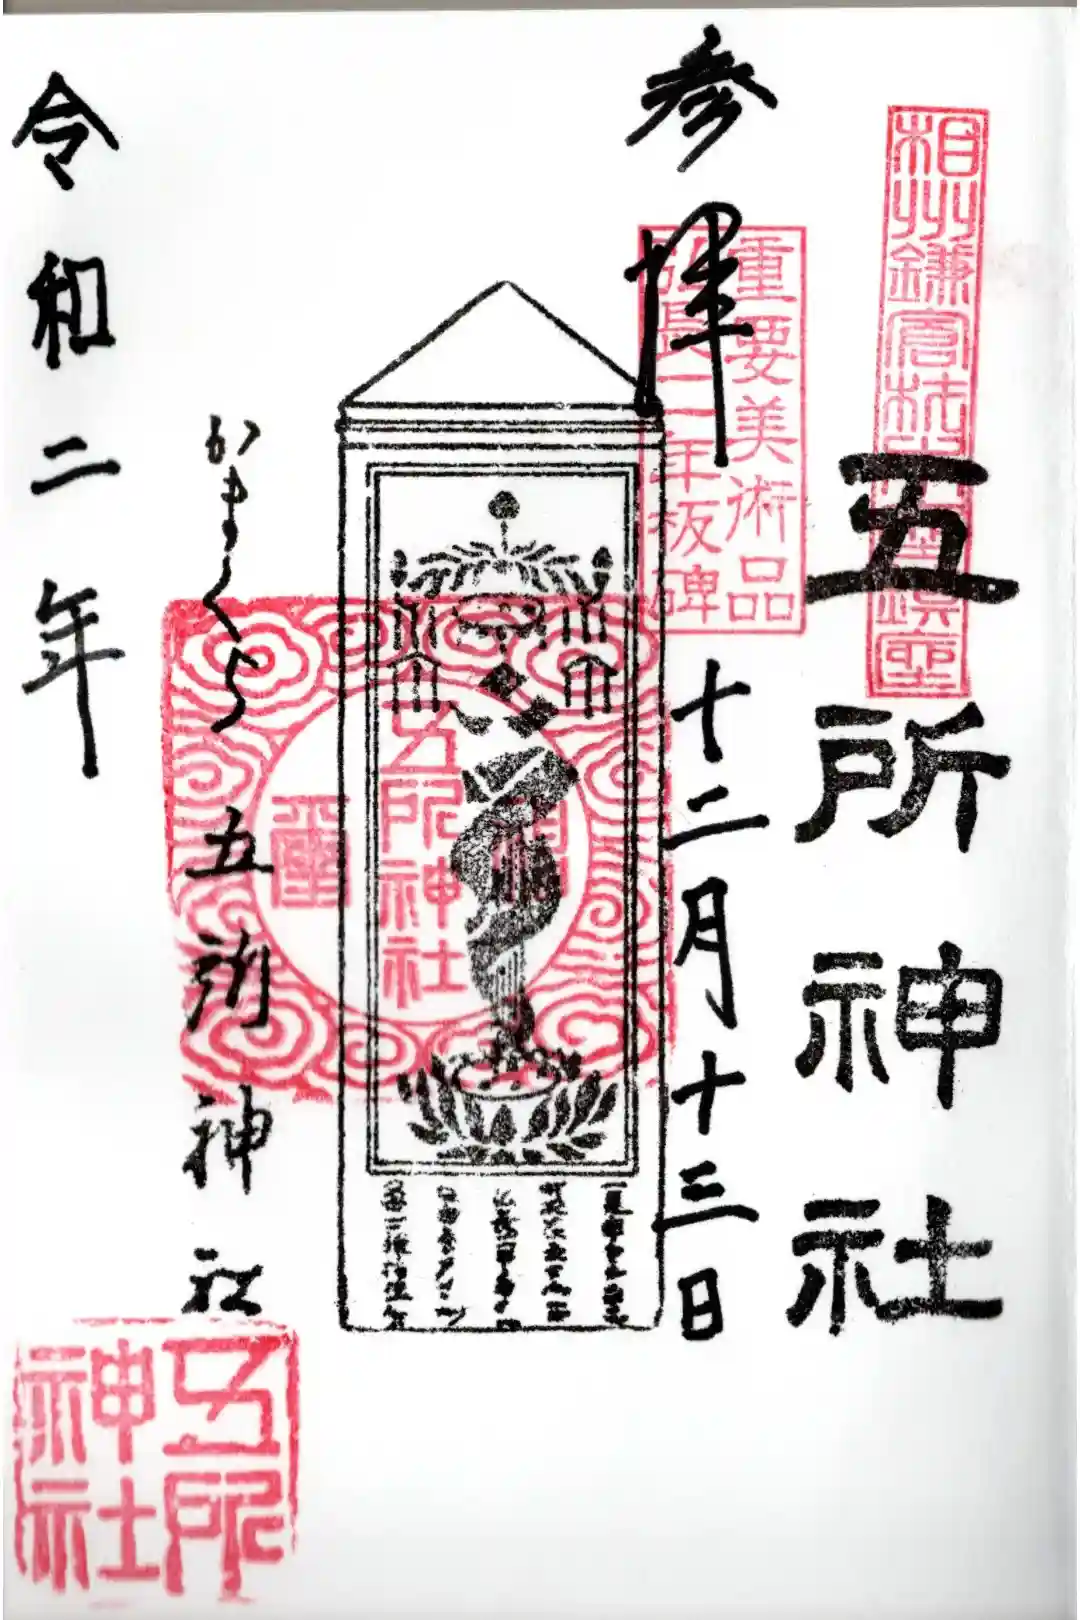 相州鎌倉材木座鎮座
五所神社
重要美術品
弘長二年板碑
参拝
十二月十三日
五所神社
かまくら 五所神社
令和二年
五所
神社